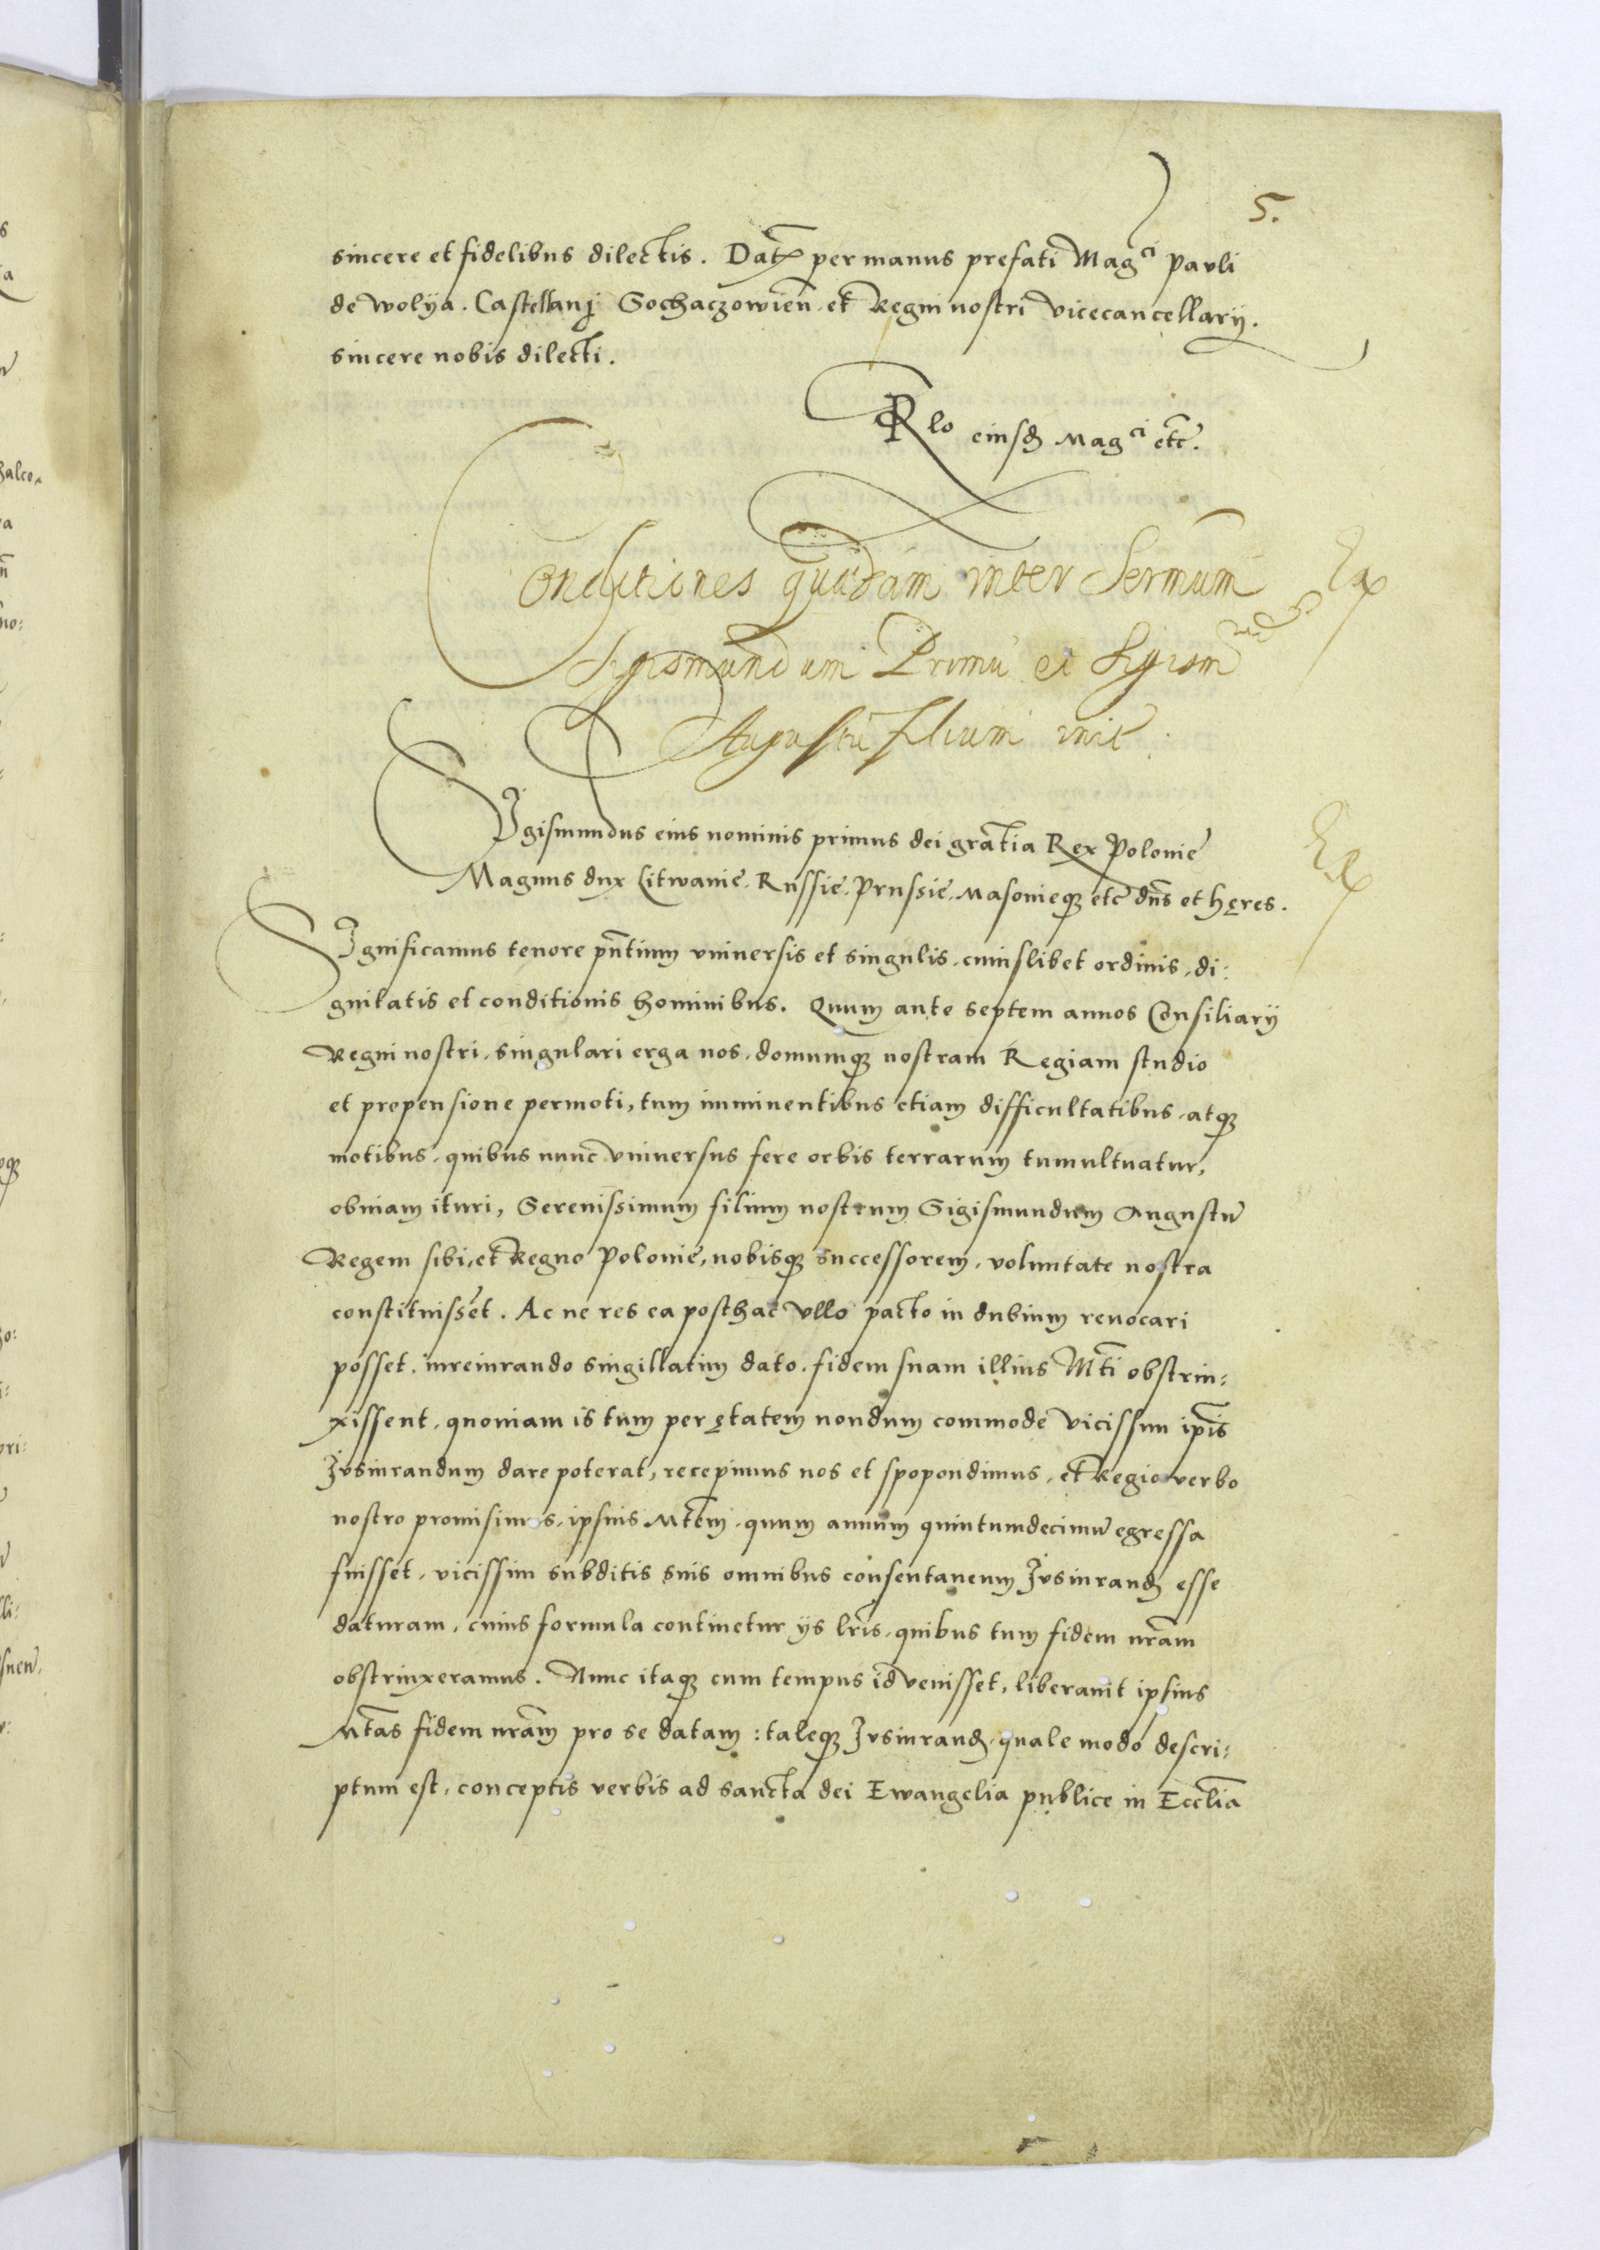 5.
sincere et fidelibus dilectis. Dat per manus prefati Mag^ci Pauli
de Wolya. Castellanj Sochaczowien̄ et Regni nostri Vicecancellarÿ.
sincere nobis dilecti.
Rlo eiusd Mag^ci etc̄.
Conditiones quædam inter Sermum
Sigismundum Primū et Sigism^undū
Augustū filium init.
Sigismundus eius nominis primus dei gratia Rex Poloniē
Magnus dux Litwaniē. Russiē. Prussiē. Masonieqꝫ etc dn̄s et hęres.
Significamus tenore pn̄tium vniuersis et singulis, cuiuslibet ordinis, di:
gnitatis et conditionis hominibus. Quum ante septem annos Consiliarÿ
Regni nostri, singulari erga nos, domumqꝫ nostram Regiam studio
et propensione permoti, tum imminentibus etiam difficultatibus, atqꝫ
motibus, quibus nunc vniuersus fere orbis terrarum tumultuatur,
obuiam ituri, Serenissimum filium nostrum Sigismundum Augustū
Regem sibi, et Regno Poloniē, nobisqꝫ successorem, voluntate nostra
constituissēt. Ac ne res ea posthac vllo pacto in dubium reuocari
posset, iureiurando singillatim dato, fidem suam illius M̄ti obstrin:
xissent, quoniam is tum per ętatem nondum commode vicissim ip̄is
Jusiurandum dare poterat, recepimus nos et spopondimus, et Regio verbo
nostro promisimus, ipsius Mt̄em, quum annum quintumdecimū egressa
fuisset, vicissim subditis suis omnibus consentaneum Jusiurand esse
daturam, cuius formula continetur ijs lr̄is, quibus tum fidem nr̄am
obstrinxeramus. Nunc itaqꝫ cum tempus id venisset, liberauit ipsius
Mt̄as fidem nr̄am pro se datam: taleqꝫ Jusiurand, quale modo descri:
ptum est, conceptis verbis ad sancta dei Ewangelia publice in Eccl̄ia